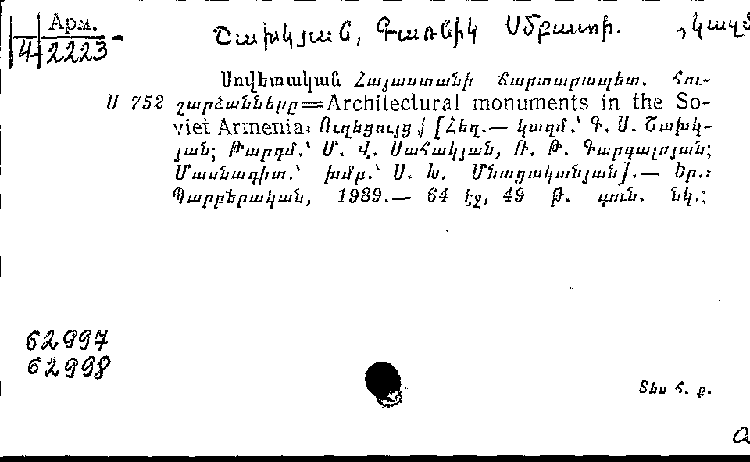 Арм.
4-2223
Շախկյան, Գառնիկ Սմբատի. , կազմ
Սովետական Հայաստանի ճարտարապետ. հու-
Ս 752 շարձանները=Architectural monuments in the So-
viet Armenia: Ուղեցույց / [Հեղ.— կազմ.՝ Գ. Ս. Շախկ-
յան; Թարգմ.՝ Մ. Վ. Սահակյան, Ռ. Թ. Գարգալոյան;
Մասնագիտ.՝ խմբ.՝ Ս. Խ. Մնացականյան].— Եր.:
Պարբերական, 1989.— 64 էջ, 49 թ. գուն. նկ.;
62997
62998
Տես հ. ք.